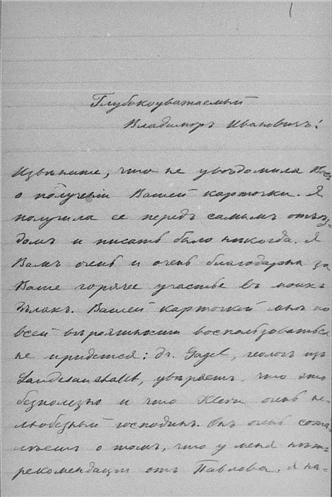 1
Глубокоуважаемый
Владиміръ Ивановичъ!
Извините, что не увѣдомила Васъ
о полученіи Вашей карточки. Я
получила ее передъ самымъ отъѣз-
домъ и писать было никогда. Я
Вамъ очень и очень благодарна за
Ваше горячее участье въ моихъ
дѣлахъ. Вашей карточкой мнѣ по
всей вѣроятности воспользоваться
не придется: dr. Gagel, геологъ изъ
Landesanstalt, увѣряетъ, что это
безполезно и что Klein очень не-
любезный господинъ. Онъ очень сожа-
лѣетъ о томъ, что у меня нѣтъ
рекомендаціи отъ Павлова. Я на-